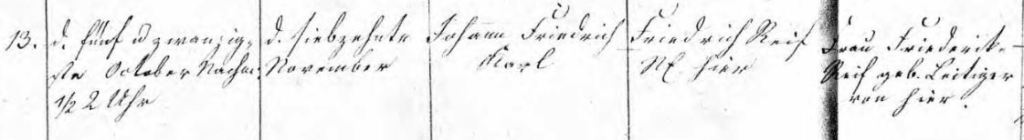 13. d. fünf u zwanzig- d. siebzehnte Johann Friedrich Friedrich Reif Frau Friederik-
ste October Nachm. November Karl hier Reif geb. Leitiger
1/2 2 Uhr von hier.